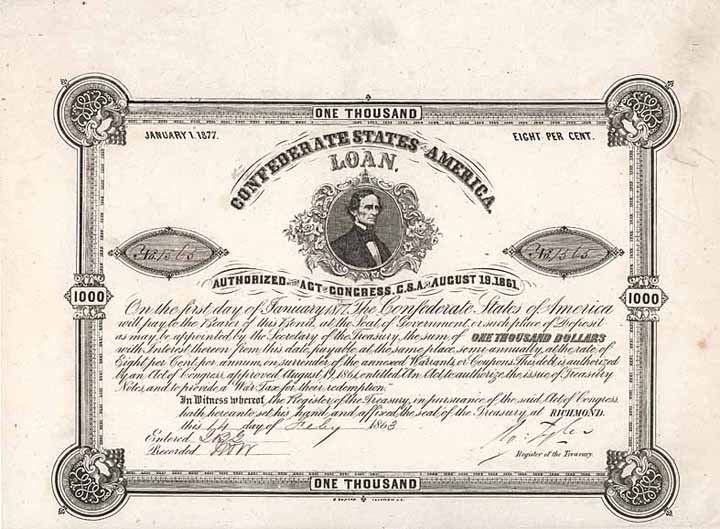 ONE THOUSAND
JANUARY 1. 1877.
EIGHT PER CENT.
CONFEDERATE STATES OF AMERICA
LOAN,
No 1563
No 1563
AUTHORIZED BY ACT OF CONGRESS, C.S.A. OF AUGUST 19.1861.
1000
1000
On the first day of January 1877, The Confederate States of America
will pay to the Bearer of this Bond, at the Seat of Government, or such place of Deposit
as may be appointed by the Secretary of the Treasury, the sum of ONE THOUSAND DOLLARS
with Interest thereon from this date, payable at the same place semi annually, at the rate of
Eight per Cent per annum, on surrender of the annexed Warrants or Coupons. This debt is authorized
by an Act of Congress approved August 19, 1861, entitled "An Act to authorize the issue of Treasury
Notes, and to provide a War Tax for their redemption."
In Witness whereof, the Register of the Treasury, in pursuance of the said Act of Congress
hath hereunto set his hand and affixed the seal of the Treasury at RICHMOND.
this day of Feby 1863
Entered
Recorded
Ro: Tyler
Register of the Treasury.
ONE THOUSAND